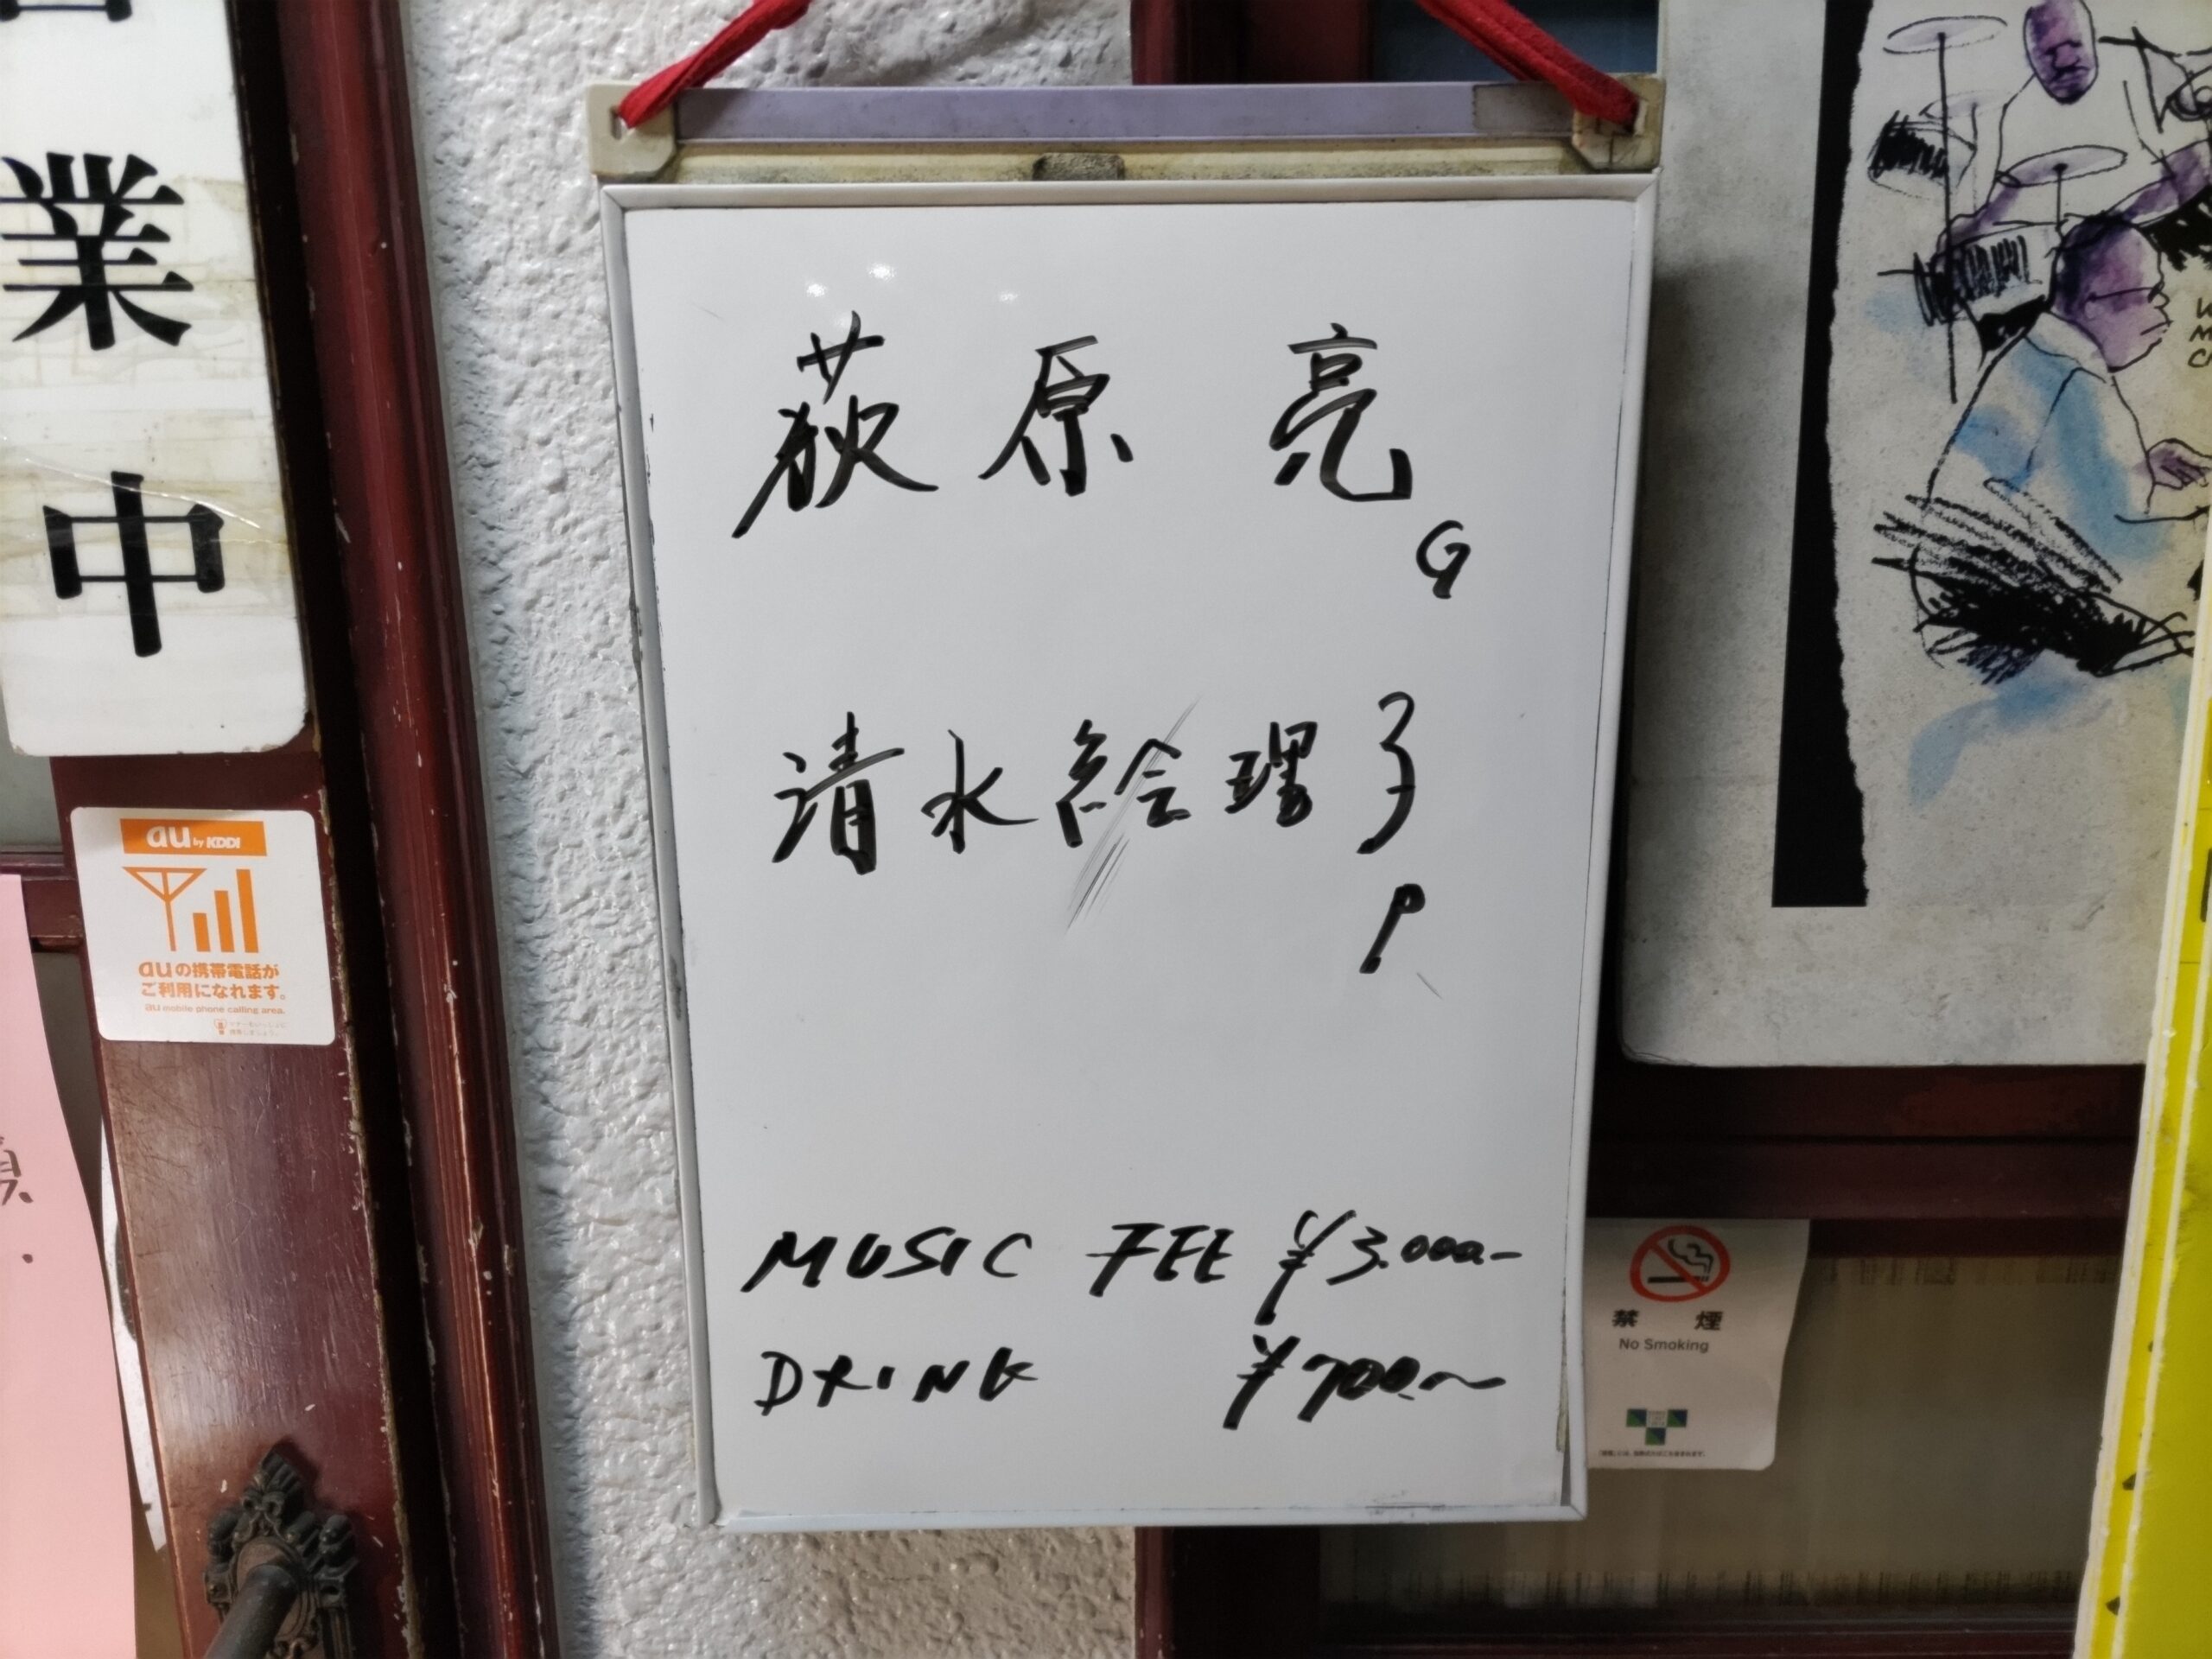 業
中
au by KDDI
auの携帯電話が
ご利用になれます。
au mobile phone calling area.
荻原 亮
G
清水絵理子
P
MUSIC FEE ¥3.000-
DRINK ¥700.~
禁 煙
No Smoking